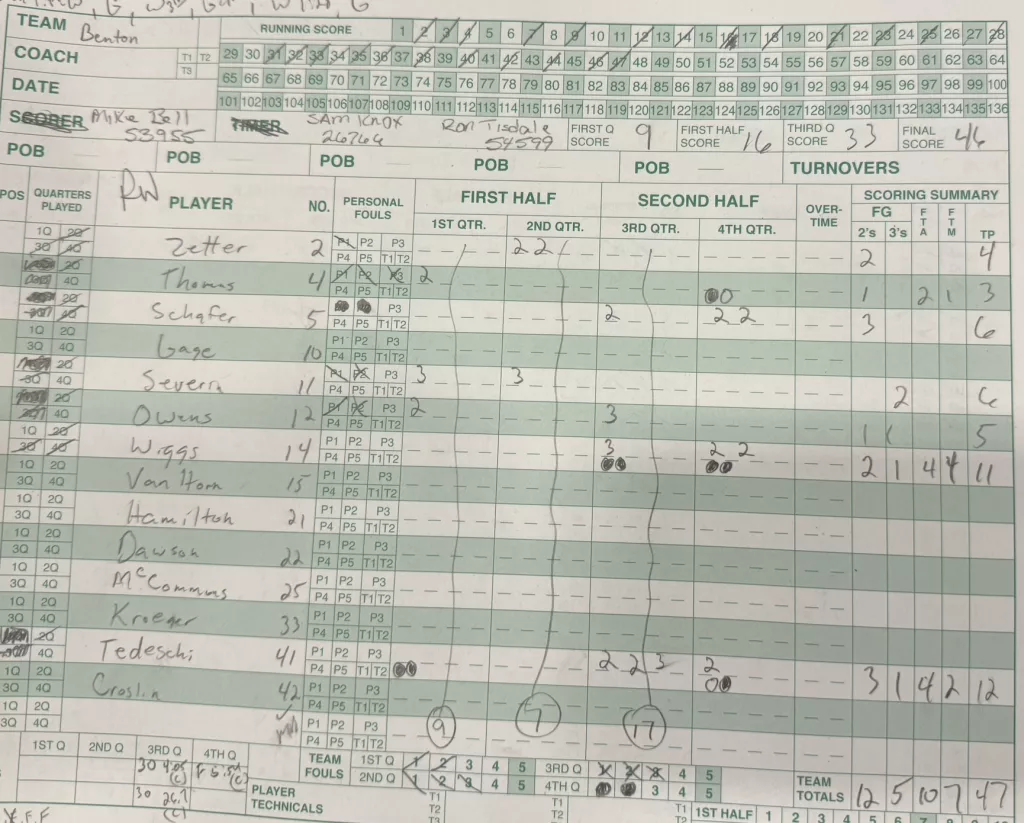 TEAM Benton RUNNING SCORE 1 2 3 4 5 6 7 8 9 10 11 12 13 14 15 16 17 18 19 20 21 22 23 24 25 26 27 28
COACH T1 T2 29 30 31 32 33 34 35 36 37 38 39 40 41 42 43 44 45 46 47 48 49 50 51 52 53 54 55 56 57 58 59 60 61 62 63 64
T3
DATE 65 66 67 68 69 70 71 72 73 74 75 76 77 78 79 80 81 82 83 84 85 86 87 88 89 90 91 92 93 94 95 96 97 98 99 100
101 102 103 104 105 106 107 108 109 110 111 112 113 114 115 116 117 118 119 120 121 122 123 124 125 126 127 128 129 130 131 132 133 134 135 136
SCORER Mike Bell 53955 TIMER SAM KNOX Ron Tisdale 54599 FIRST Q SCORE 9 FIRST HALF SCORE 16 THIRD Q SCORE 33 FINAL SCORE 46
POB POB POB POB POB TURNOVERS
POS QUARTERS PLAYED RW PLAYER NO. PERSONAL FOULS FIRST HALF SECOND HALF OVER-TIME SCORING SUMMARY
1ST QTR. 2ND QTR. 3RD QTR. 4TH QTR. FG 2's 3's FTA FTM TP
1Q 2Q 3Q 4Q Zetter 2 P1 P2 P3 P4 P5 T1 T2 2 2 2 4
2Q 4Q Thomas 4 P1 P2 P3 P4 P5 T1 T2 2 1 2 1 3
2Q 4Q Schafer 5 P3 P4 P5 T1 T2 2 2 2 3 6
1Q 2Q 3Q 4Q Gage 10 P1 P2 P3 P4 P5 T1 T2
2Q 3Q 4Q Severn 11 P1 P2 P3 P4 P5 T1 T2 3 3 2 6
2Q 4Q Owens 12 P1 P2 P3 P4 P5 T1 T2 2 3 1 1 5
1Q 2Q 3Q 4Q Wiggs 14 P1 P2 P3 P4 P5 T1 T2 3 2 2 2 1 4 4 11
1Q 2Q 3Q 4Q Van Horn 15 P1 P2 P3 P4 P5 T1 T2
1Q 2Q 3Q 4Q Hamilton 21 P1 P2 P3 P4 P5 T1 T2
1Q 2Q 3Q 4Q Dawson 22 P1 P2 P3 P4 P5 T1 T2
1Q 2Q 3Q 4Q McCommas 25 P1 P2 P3 P4 P5 T1 T2
1Q 2Q 3Q 4Q Kroeger 33 P1 P2 P3 P4 P5 T1 T2
2Q 4Q Tedeschi 41 P1 P2 P3 P4 P5 T1 T2 2 2 3 2 3 1 4 2 12
1Q 2Q 3Q 4Q Croslin 42 P1 P2 P3 P4 P5 T1 T2
1Q 2Q 3Q 4Q P1 P2 P3 P4 P5 T1 T2 9 7 17
1ST Q 2ND Q 3RD Q 4TH Q TEAM FOULS 1ST Q 1 2 3 4 5 3RD Q 1 2 3 4 5 TEAM TOTALS 12 5 10 7 47
2ND Q 1 2 3 4 5 4TH Q 3 4 5
30 4:05 (c)
30 (c)
PLAYER TECHNICALS T1 T2 T3 T1 T2 T1 T2 1ST HALF 1 2 3 4 5 6 7